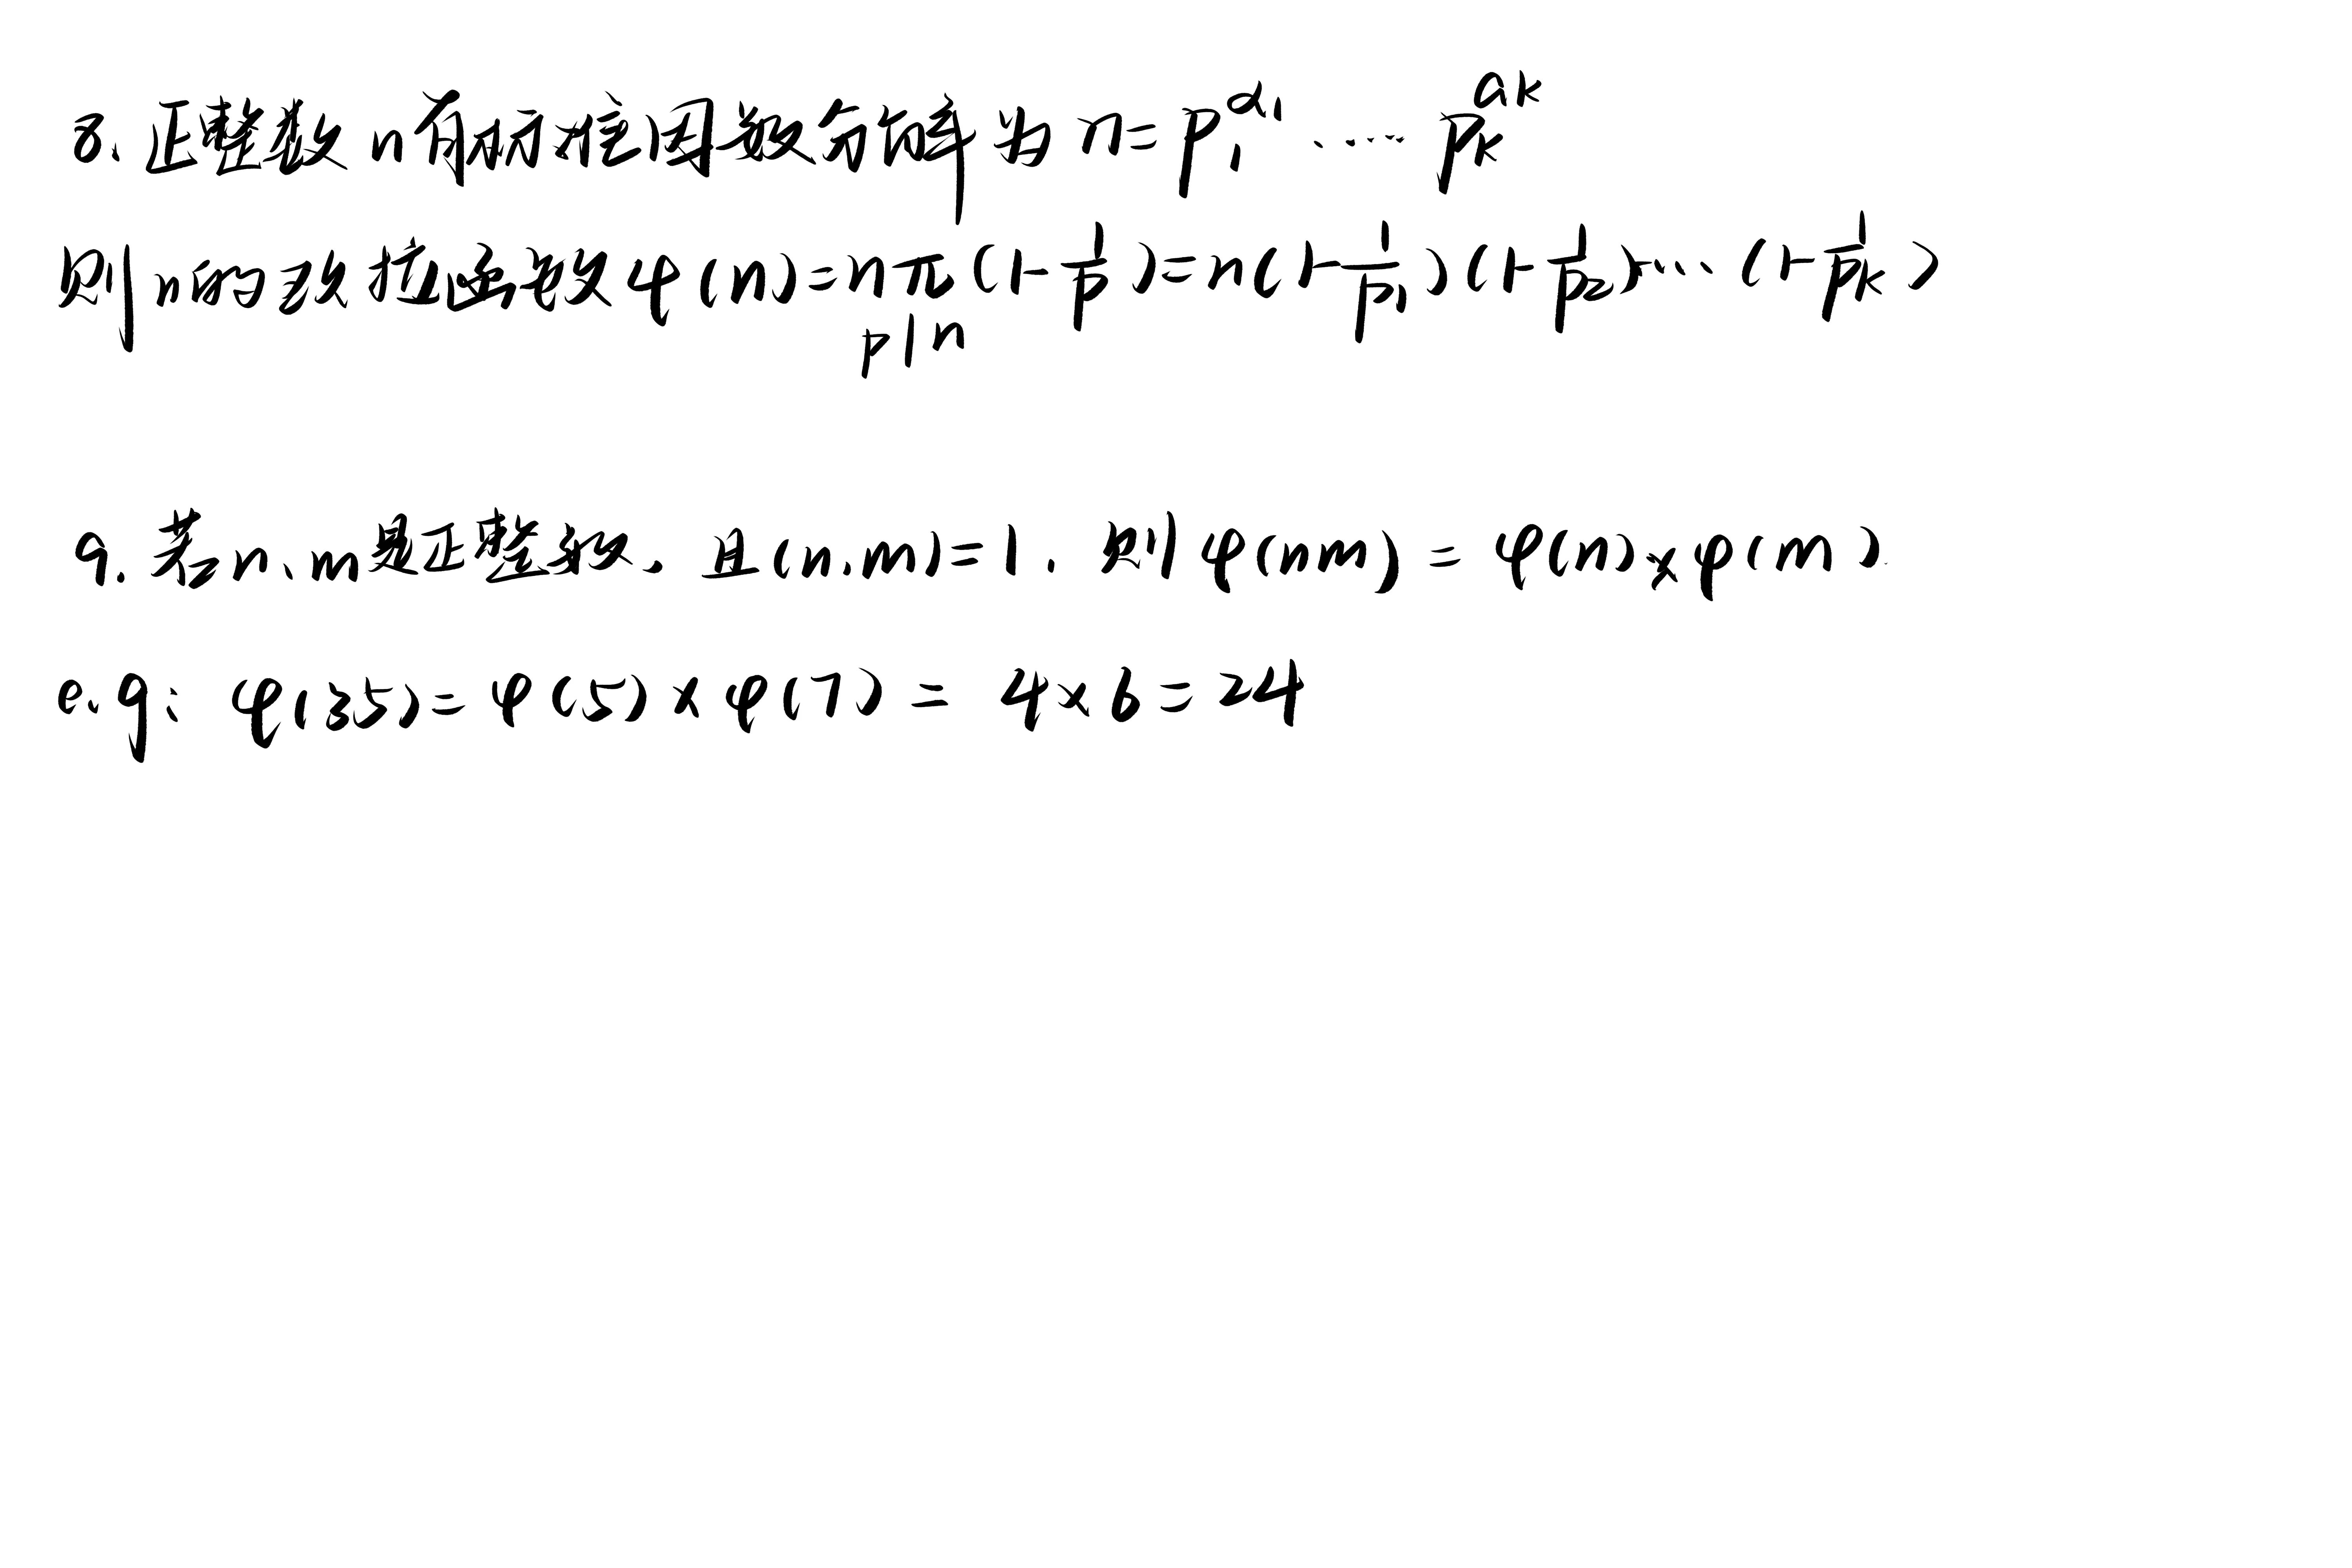 8. 正整数n有标准因数分解为 n=p₁^α₁ ····· pₖ^αₖ
则n的欧拉函数φ(n)=nπ(1-1/p)=n(1-1/p₁)(1-1/p₂)····(1-1/pₖ)
p|n
9. 若n、m是正整数,且(n.m)=1.则φ(nm)=φ(n)×φ(m).
e.g: φ(35)=φ(5)×φ(7)=4×6=24